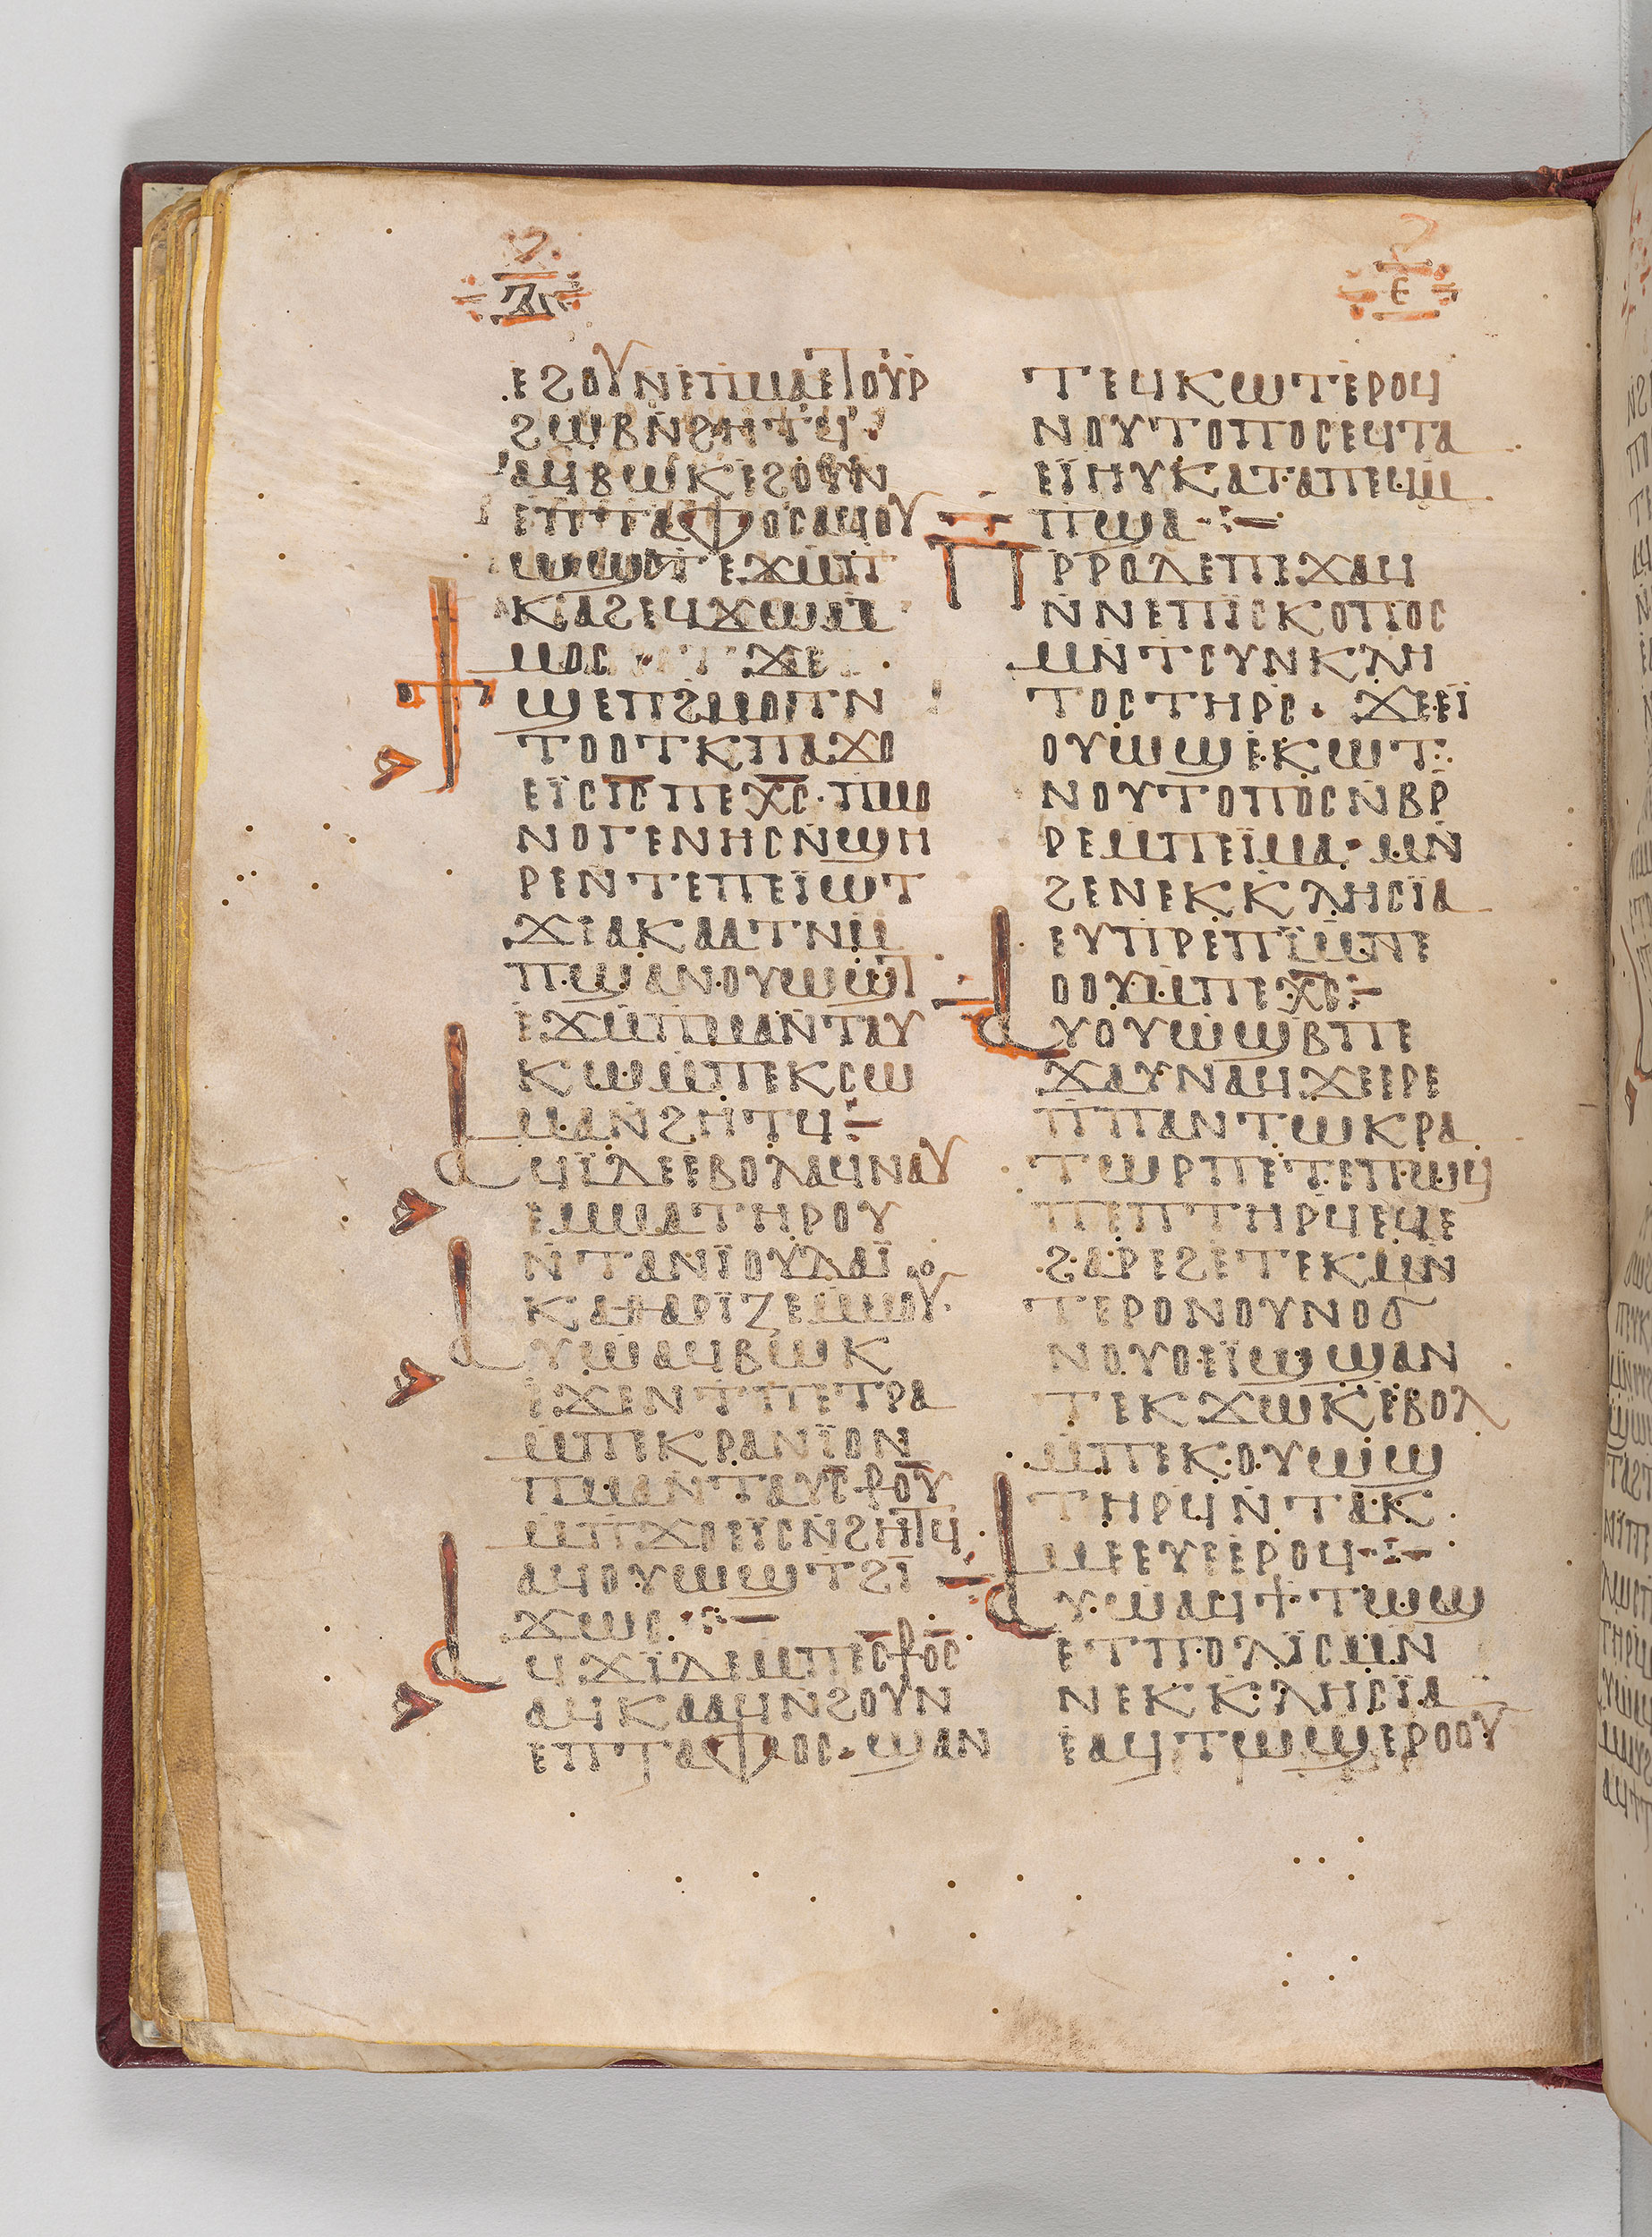 ⲗⲏ
ⲉ
ⲉϩⲟⲩⲛⲉⲡⲙⲁⲉⲧⲟⲩⲣ
ϩⲱⲃⲛ̄ϩⲏⲧϥ·
ⲁϥⲃⲱⲕⲉϩⲟⲩⲛ
ⲉⲡⲧⲁⲫⲟⲥⲁϥⲟⲩ
ⲱϣⲧⲉϫⲙ̄ⲡ
ⲕⲁϩⲉϥϫⲱⲙ̄
ⲙⲟⲥ · ϫⲉ
ϯ
ϣⲉⲡϩⲙⲟⲧⲛ
ⲧⲟⲟⲧⲕⲡⲁϫⲟ
ⲉⲓ̈ⲥⲓ̅ⲥ̅ⲡⲉⲭ̅ⲥ̅·ⲡⲙⲟ
ⲛⲟⲅⲉⲛⲏⲥⲛ̄ϣⲏ
ⲣⲉⲛ̄ⲧⲉⲡⲉⲓ̈ⲱⲧ
ϫⲉⲁⲕⲁⲁⲧⲛ̄ⲙ̄
ⲡϣⲁⲛⲟⲩⲱϣⲧ
ⲉϫⲙ̄ⲡⲙⲁⲛ̄ⲧⲁⲩ
ⲕⲱⲙ̄ⲡⲉⲕⲥⲱ
ⲙⲁⲛ̄ϩⲏⲧϥ:–
ⲁϥⲓ̈ⲇⲉⲉⲃⲟⲗⲁϥⲛⲁⲩ
ⲉⲙⲙⲁⲧⲏⲣⲟⲩ
ⲛ̄ⲧⲁⲛⲓ̈ⲟⲩⲇⲁⲓ̈
ⲕⲁⲑⲁⲣⲓ̈ⲍⲉⲙ̄ⲙⲟⲟⲩ
ⲁⲩⲱⲁϥⲃⲱⲕ
ⲉϫⲉⲛⲧⲡⲉⲧⲣⲁ
ⲙ̄ⲡⲉⲕⲣⲁⲛⲓ̈ⲟⲛ
ⲡⲙⲁⲛ̄ⲧⲁⲩⲥ⳨ⲟⲩ
ⲙ̄ⲡϫⲟⲉⲓ̈ⲥⲛ̄ϩⲏⲧϥ
ⲁϥⲟⲩⲱϣⲧϩⲓ
ϫⲱⲥ·:–
ⲁϥϫⲓ̈ⲇⲉⲙ̄ⲡⲉⲥ⳨ⲟⲥ
ⲁϥⲕⲁⲁϥⲛ̄ϩⲟⲩⲛ
ⲉⲡⲧⲁⲫⲟⲥ·ϣⲁⲛ
ⲧⲉϥⲕⲱⲧⲉⲣⲟϥ
ⲛⲟⲩⲧⲟⲡⲟⲥⲉϥⲧⲁ
ⲉⲓ̈ⲏⲩⲕⲁⲧⲁⲡⲉϥⲙ̄
ⲡϣⲁ·:–
ⲡⲣⲣⲟⲇⲉⲡⲉϫⲁϥ
ⲛ̄ⲛⲉⲡⲓ̈ⲥⲕⲟⲡⲟⲥ
ⲙⲛ̄ⲧⲥⲩⲛⲕⲗⲏ
ⲧⲟⲥⲧⲏⲣⲥ·ϫⲉⲉⲓ̈
ⲟⲩⲱϣⲉⲕⲱⲧ
ⲛⲟⲩⲧⲟⲡⲟⲥⲛ̄ⲃⲣ̄
ⲣⲉⲙ̄ⲡⲉⲓ̈ⲙⲁ·ⲙⲛ̄
ϩⲉⲛⲉⲕⲕⲗⲏⲥⲓ̈ⲁ
ⲉⲩⲡⲣⲉⲡⲓ̈ⲙ̄ⲡⲉ
ⲟⲟⲩⲙ̄ⲡⲉⲭ̅ⲥ̅:–
ⲁⲩⲟⲩⲱϣⲃⲡⲉ
ϫⲁⲩⲛⲁϥϫⲉⲉⲣⲉ
ⲡⲡⲁⲛⲧⲱⲕⲣⲁ
ⲧⲱⲣⲡⲉⲧⲉⲡⲱϥ
ⲡⲉⲡⲧⲏⲣϥⲉϥⲉ
ϩⲁⲣⲉϩⲉⲧⲉⲕⲙⲛ̄
ⲧⲉⲣⲟⲛⲟⲩⲛⲟϭ
ⲛⲟⲩⲟⲉⲓ̈ϣϣⲁⲛ
ⲧⲉⲕϫⲱⲕⲉⲃⲟⲗ
ⲙ̄ⲡⲉⲕⲟⲩⲱϣ
ⲧⲏⲣϥⲛ̄ⲧⲁⲕ
ⲙⲉⲉⲩⲉⲉⲣⲟϥ·:–
ⲁⲩⲱⲁϥϯⲧⲱϣ
ⲉⲧⲡⲟⲗⲓ̈ⲥⲙⲛ̄
ⲛⲉⲕⲕⲗⲏⲥⲓ̈ⲁ
ⲉⲁϥⲧⲱϣⲉⲣⲟⲟⲩ